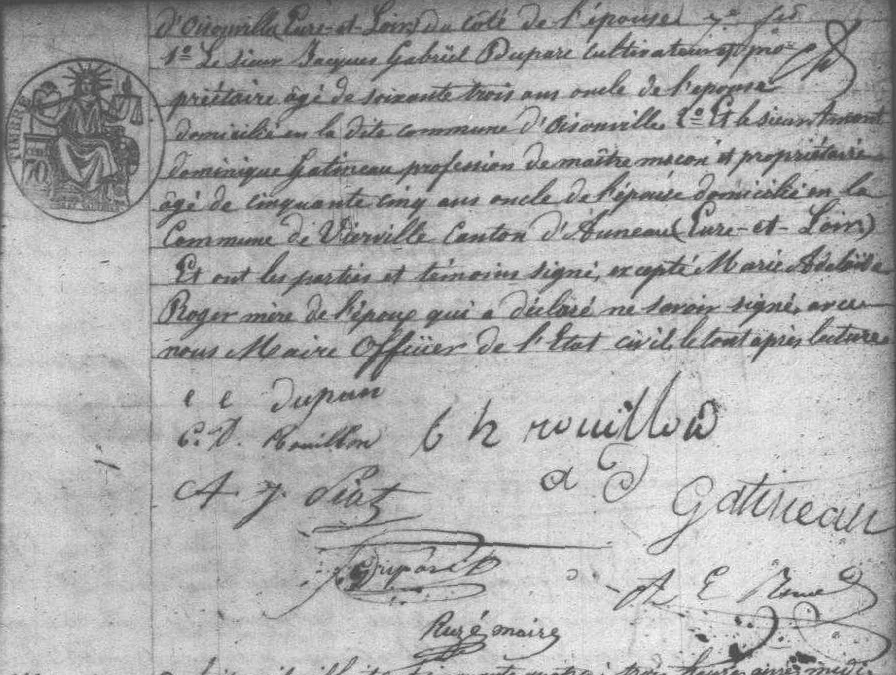 d'Oisonville (Eure-et-Loir) du côté de l'épouse
1º Le sieur Jacques Gabriel Dupare Cultivateur et pro-
priétaire âgé de soixante trois ans oncle de l'epouse
domicilié en la dite commune d'Oisonville. 2º Et le sieur Amant
dominique Gatineau profession de maître maçon et propriétaire
âgé de cinquante cinq ans oncle de l'épouse domicilié en la
Commune de Vierville Canton d'Auneau (Eure-et-Loir)
Et ont les parties et témoins signé, excepté Marie Adelaïde
Roger mère de l'époux qui a déclaré ne savoir signé, avec
nous Maire Officier de l'Etat civil le tout après lecture
TIMBRE
70
C. D. Rouillon
rouillon
A
Gatineau
A E
maire
trois heures après midi